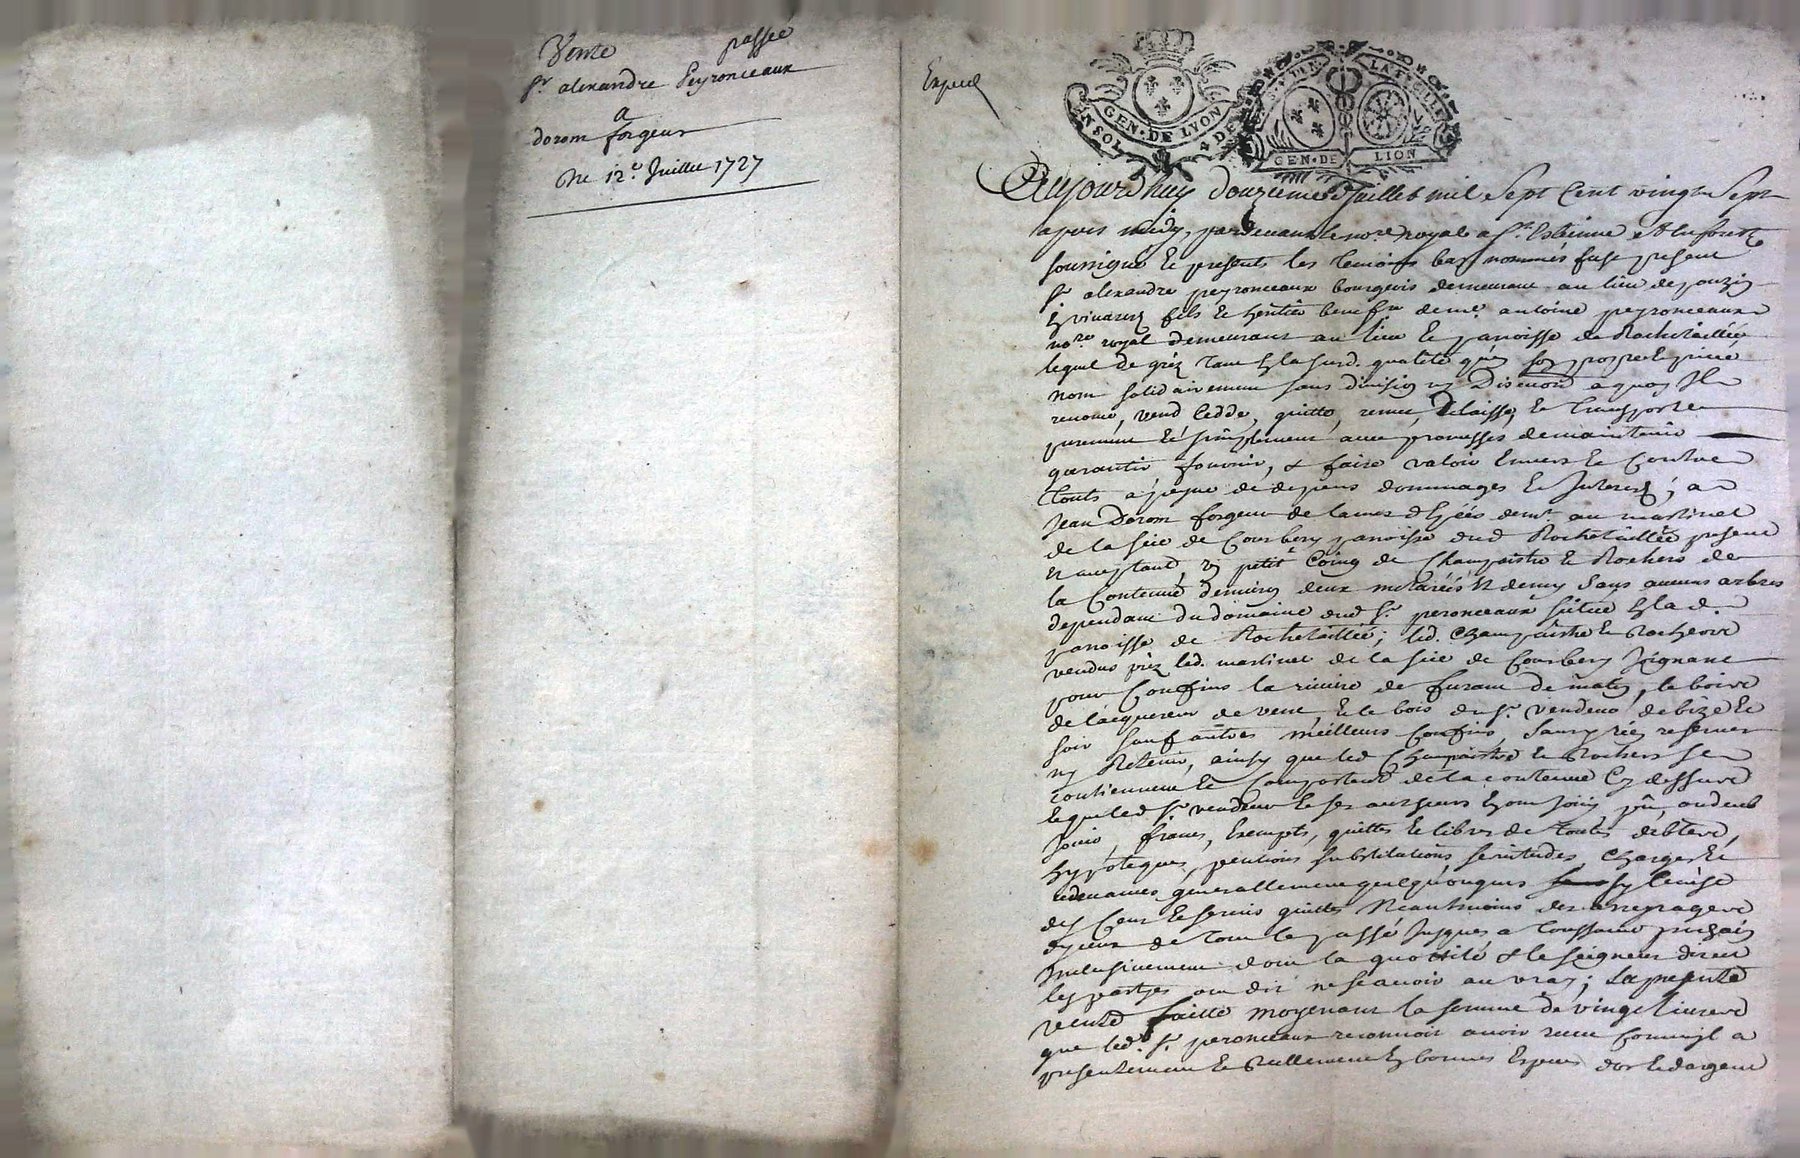 Vente passée
Sr. alexandre Peyronceaux
a
dorom forgeur
Du 12e. Juillet 1727
Exped
GEN·DE LYON
GEN·DE LION
Aujourdhuy douzieme Juillet mil Sept Cent vingt Sept
apres midy, pardevant le nore. royal a St. Estienne et la forest
soussigné et presents les temoins bas nommés fust present
Sr. alexandre peyronceaux bourgeois demeurant au lieu de pouzin
En vivarez fils et heritier benefre. de me. antoine peyronceaux
nore. royal demeurant au lieu et parroisse de Rochetaillée
lequel de gréz tant En la susd. qualité qu'en son propre et privé
nom solidairement sans division ny Discution a quoy Il
renonce, vend cedde, quitte, remet, delaisse, et transporte
purement et simplement avec promesses de maintenir
garantir fournir, & faire valoir Envers et Contre
touts a peyne de depens dommages et Interests; a
Jean Dorom forgeur de lames d'Epées demt. au martinet
de la scie de Courbon parroisse dud. Rochetaillée present
et acceptant, un petit Coing de Champaistre et Rochers de
la Contenue d'environ deux metairéés et demy Sans aucuns arbres
dependant du domaine dud. Sr. peronceaux scitué En lad.
parroisse de Rochetaillée; led. Champaistre et Rochers
vendus prez led. martinet de la scie de Courbon Joignant
pour Confins la riviere de furant de matin, le bois
de l'acquereur de vent, et le bois du Sr. vendeur de bize et
soir sauf autres meilleurs Confins, Sans rien reserver
ny Retenir, ainsy que led. Champaistre et Rochers se
contiennent et Comportent de la contenue Cy dessus
et que led. Sr. vendeur et ses autheurs En ont Jouy, pû, ou deub
Jouir, francs, Exempts, quittes et libres de toutes debtes,
hypoteques, pentions substitutions, servitudes, charges et
redevances generallement quelquonques
des Cens et servis quittes Neantmoins des arreyrages
d'yceux de tout le passé Jusques a toussaint prochain
Inclusivement dont la quottité & le seigneur direct
les parties ont dit ne scavoir au vray; La presente
vente faitte moyenant la somme de vingt livres
que led. Sr. peronceaux reconnoit avoir receu comme Il a
presentement et Reellement En bonnes Especes d'or et d'argent